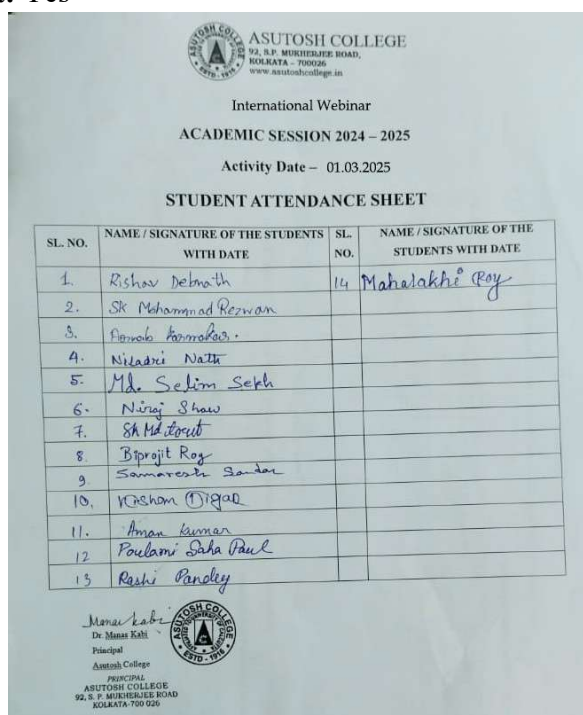 Yes
ASUTOSH COLLEGE
92, S.P. MUKHERJEE ROAD,
KOLKATA – 700026
www.asutoshcollege.in
International Webinar
ACADEMIC SESSION 2024 – 2025
Activity Date – 01.03.2025
STUDENT ATTENDANCE SHEET
SL. NO. NAME / SIGNATURE OF THE STUDENTS WITH DATE SL. NO. NAME / SIGNATURE OF THE STUDENTS WITH DATE
1. Rishav Debnath 14 Mahalakhi Roy
2. SK Mohammad Rezwan
3. Karmakar.
4. Niladri Nath
5. Md. Selim Sekh
6. Niraj Shaw
7. Sk Md
8. Biprojit Roy
9. Samaresh
10. Digar
11. Aman Kumar
12 Poulami Saha Paul
13 Rashi Pandey
Manas Kabi
Dr. Manas Kabi
Principal
Asutosh College
PRINCIPAL
ASUTOSH COLLEGE
92, S. P. MUKHERJEE ROAD
KOLKATA-700 026
ASUTOSH COLLEGE
ESTD - 1916